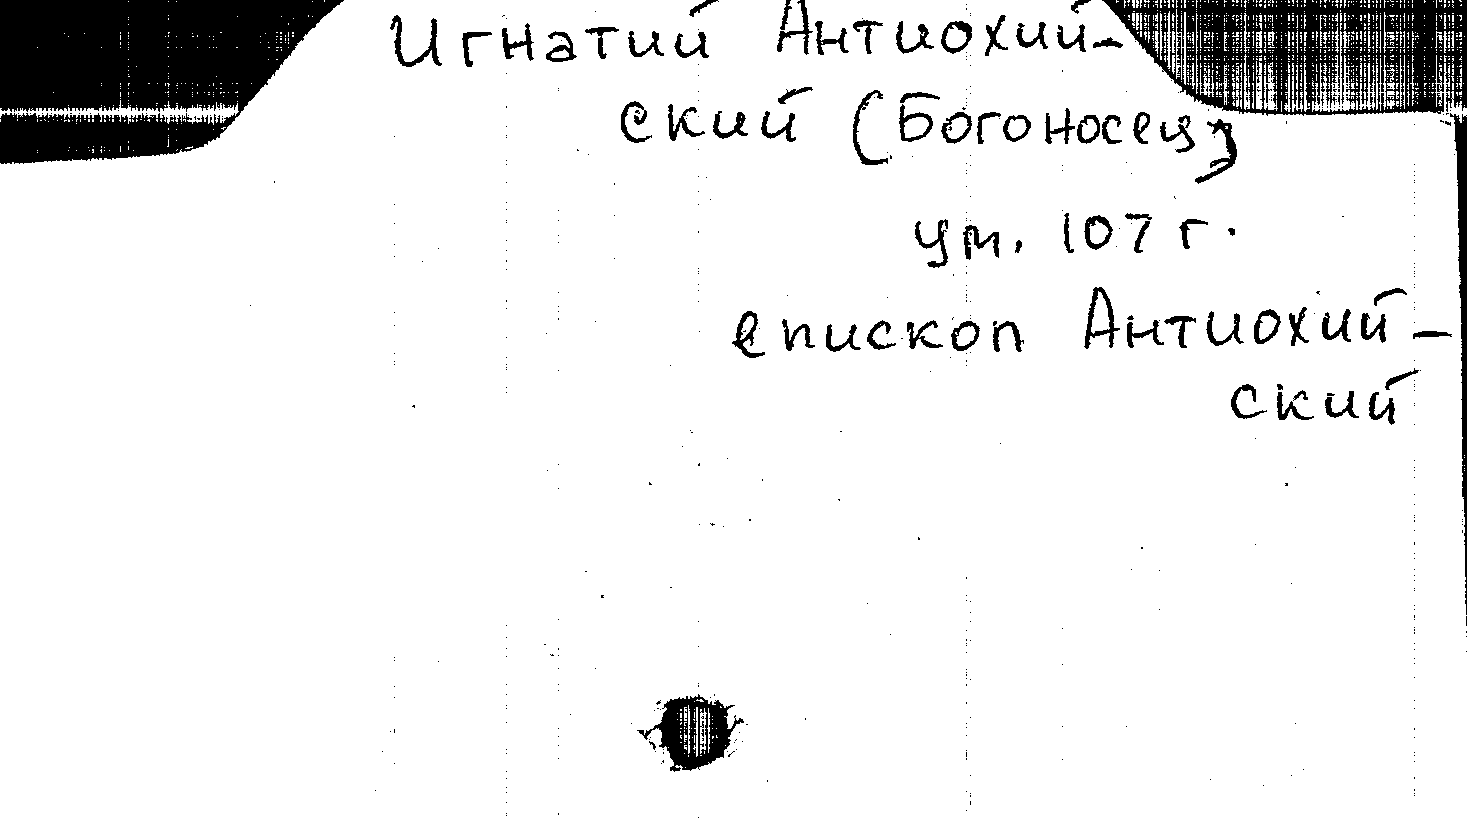 Игнатий Антиохий-
ский (Богоносец)
ум. 107 г.
епископ Антиохий-
ский